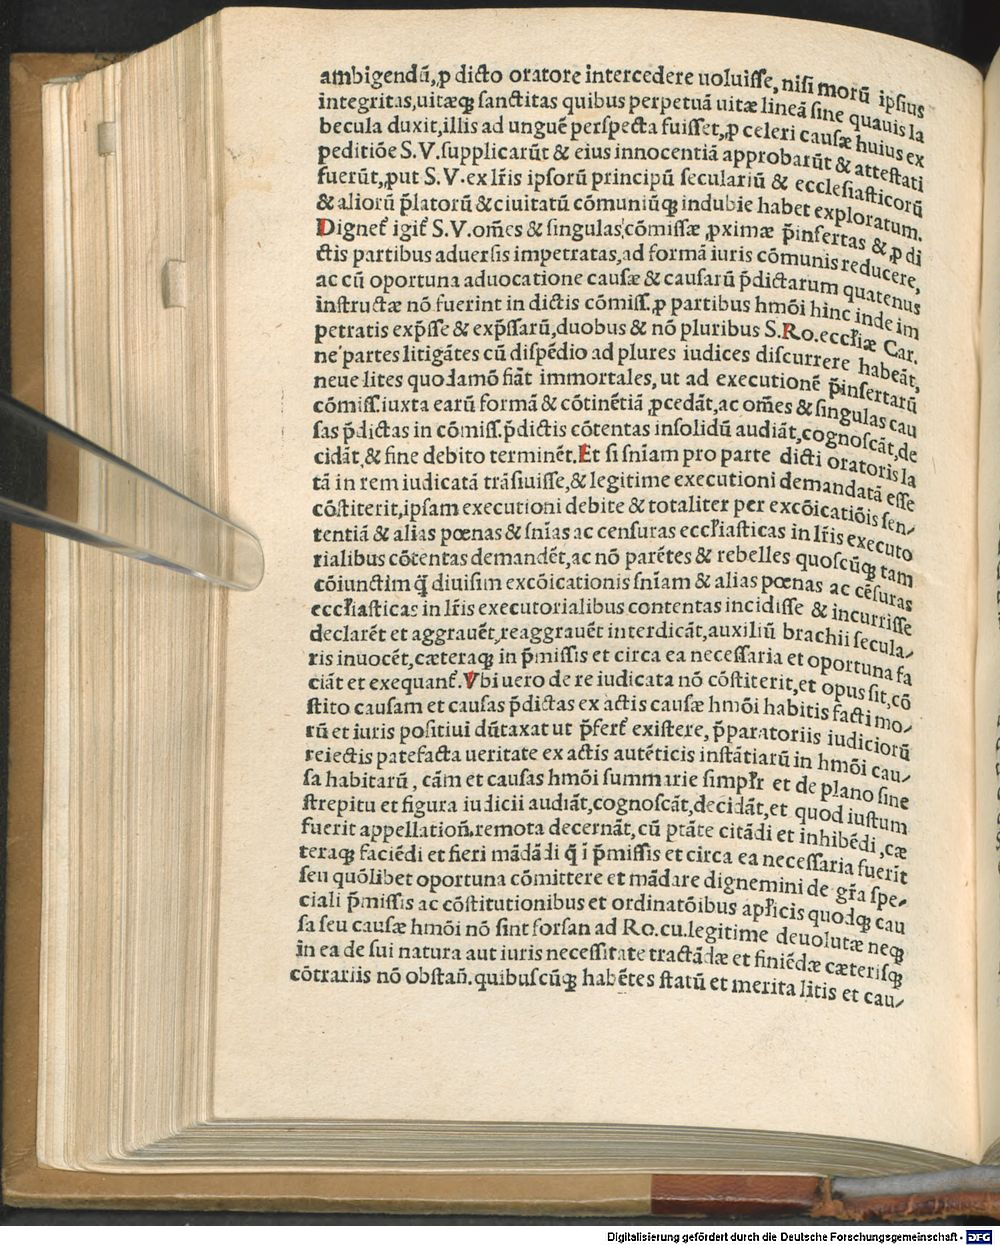 ambigendā, ꝓ dicto oratore intercedere uoluiſſe, niſi morū ipſius
integritas, uitæq; ſanctitas quibus perpetuā uitæ lineā ſine quauis la
becula duxit, illis ad unguē perſpecta fuiſſet, ꝓ celeri cauſæ huius ex
peditiōe S.V. ſupplicarūt & eius innocentiā approbarūt & atteſtati
fuerūt, ꝓut S.V. ex lr̄is ipſorū principū ſeculariū & eccleſiaſticorū
& aliorū p̄latorū & ciuitatū cōmuniūq; indubie habet exploratum.
Dignet̄ igit̄ S.V. om̄es & ſingulas cōmiſſæ ꝓximæ p̄inſertas & ꝓ di
ctis partibus aduerſis impetratas, ad formā iuris cōmunis reducere,
ac cū oportuna aduocatione cauſæ & cauſarū p̄dictarum quatenus
inſtructæ nō fuerint in dictis cōmiſſ. ꝓ partibus hmōi hinc inde im
petratis exp̄ſſe & exp̄ſſarū, duobus & nō pluribus S. Ro. eccl̄iæ Car.
ne partes litigātes cū diſpēdio ad plures iudices diſcurrere habeāt,
neue lites quodamō fiāt immortales, ut ad executionē p̄inſertarū
cōmiſſ. iuxta earū formā & cōtinētiā ꝓcedāt, ac om̄es & ſingulas cau
ſas p̄dictas in cōmiſſ. p̄dictis cōtentas inſolidū audiāt, cognoſcāt, de
cidāt, & fine debito terminēt. Et ſi ſn̄iam pro parte dicti oratoris la
tā in rem iudicatā trāſiuiſſe, & legitime executioni demandatā eſſe
cōſtiterit, ipſam executioni debite & totaliter per excōicatiōis ſen⸗
tentiā & alias pœnas & ſn̄ias ac cenſuras eccl̄iaſticas in lr̄is executo
rialibus cōtentas demandēt, ac nō parētes & rebelles quoſcūq; tam
cōiunctim q̄ diuiſim excōicationis ſn̄iam & alias pœnas ac cēſuras
eccl̄iaſticas in lr̄is executorialibus contentas incidiſſe & incurriſſe
declarēt et aggrauēt, reaggrauēt interdicāt, auxiliū brachii ſecula⸗
ris inuocēt, cæteraq; in p̄miſſis et circa ea neceſſaria et oportuna fa
ciāt et exequant̄. Vbi uero de re iudicata nō cōſtiterit, et opus ſit, cō
ſtito cauſam et cauſas p̄dictas ex actis cauſæ hmōi habitis facti mo⸗
rū et iuris poſitiui dūtaxat ut p̄fert̄ exiſtere, p̄paratoriis iudiciorū
reiectis patefacta ueritate ex actis autēticis inſtātiarū in hmōi cau⸗
ſa habitarū, cām et cauſas hmōi ſummarie ſimpl̄r et de plano ſine
ſtrepitu et figura iudicii audiāt, cognoſcāt, decidāt, et quod iuſtum
fuerit appellation̄. remota decernāt, cū ptāte citādi et inhibēdi, cæ
teraq; faciēdi et fieri mādādi q̄ ī p̄miſſis et circa ea neceſſaria fuerīt
ſeu quōlibet oportuna cōmittere et mādare dignemini de gr̄a ſpe⸗
ciali p̄miſſis ac cōſtitutionibus et ordinatōibus apl̄icis quodq; cau
ſa ſeu cauſæ hmōi nō ſint forſan ad Ro. cu. legitime deuolutæ neq;
in ea de ſui natura aut iuris neceſſitate tractādæ et finiēdæ cæteriſq;
cōtrariis nō obſtan̄. quibuſcūq; habētes ſtatū et merita litis et cau⸗
Digitalisierung gefördert durch die Deutsche Forschungsgemeinschaft - DFG